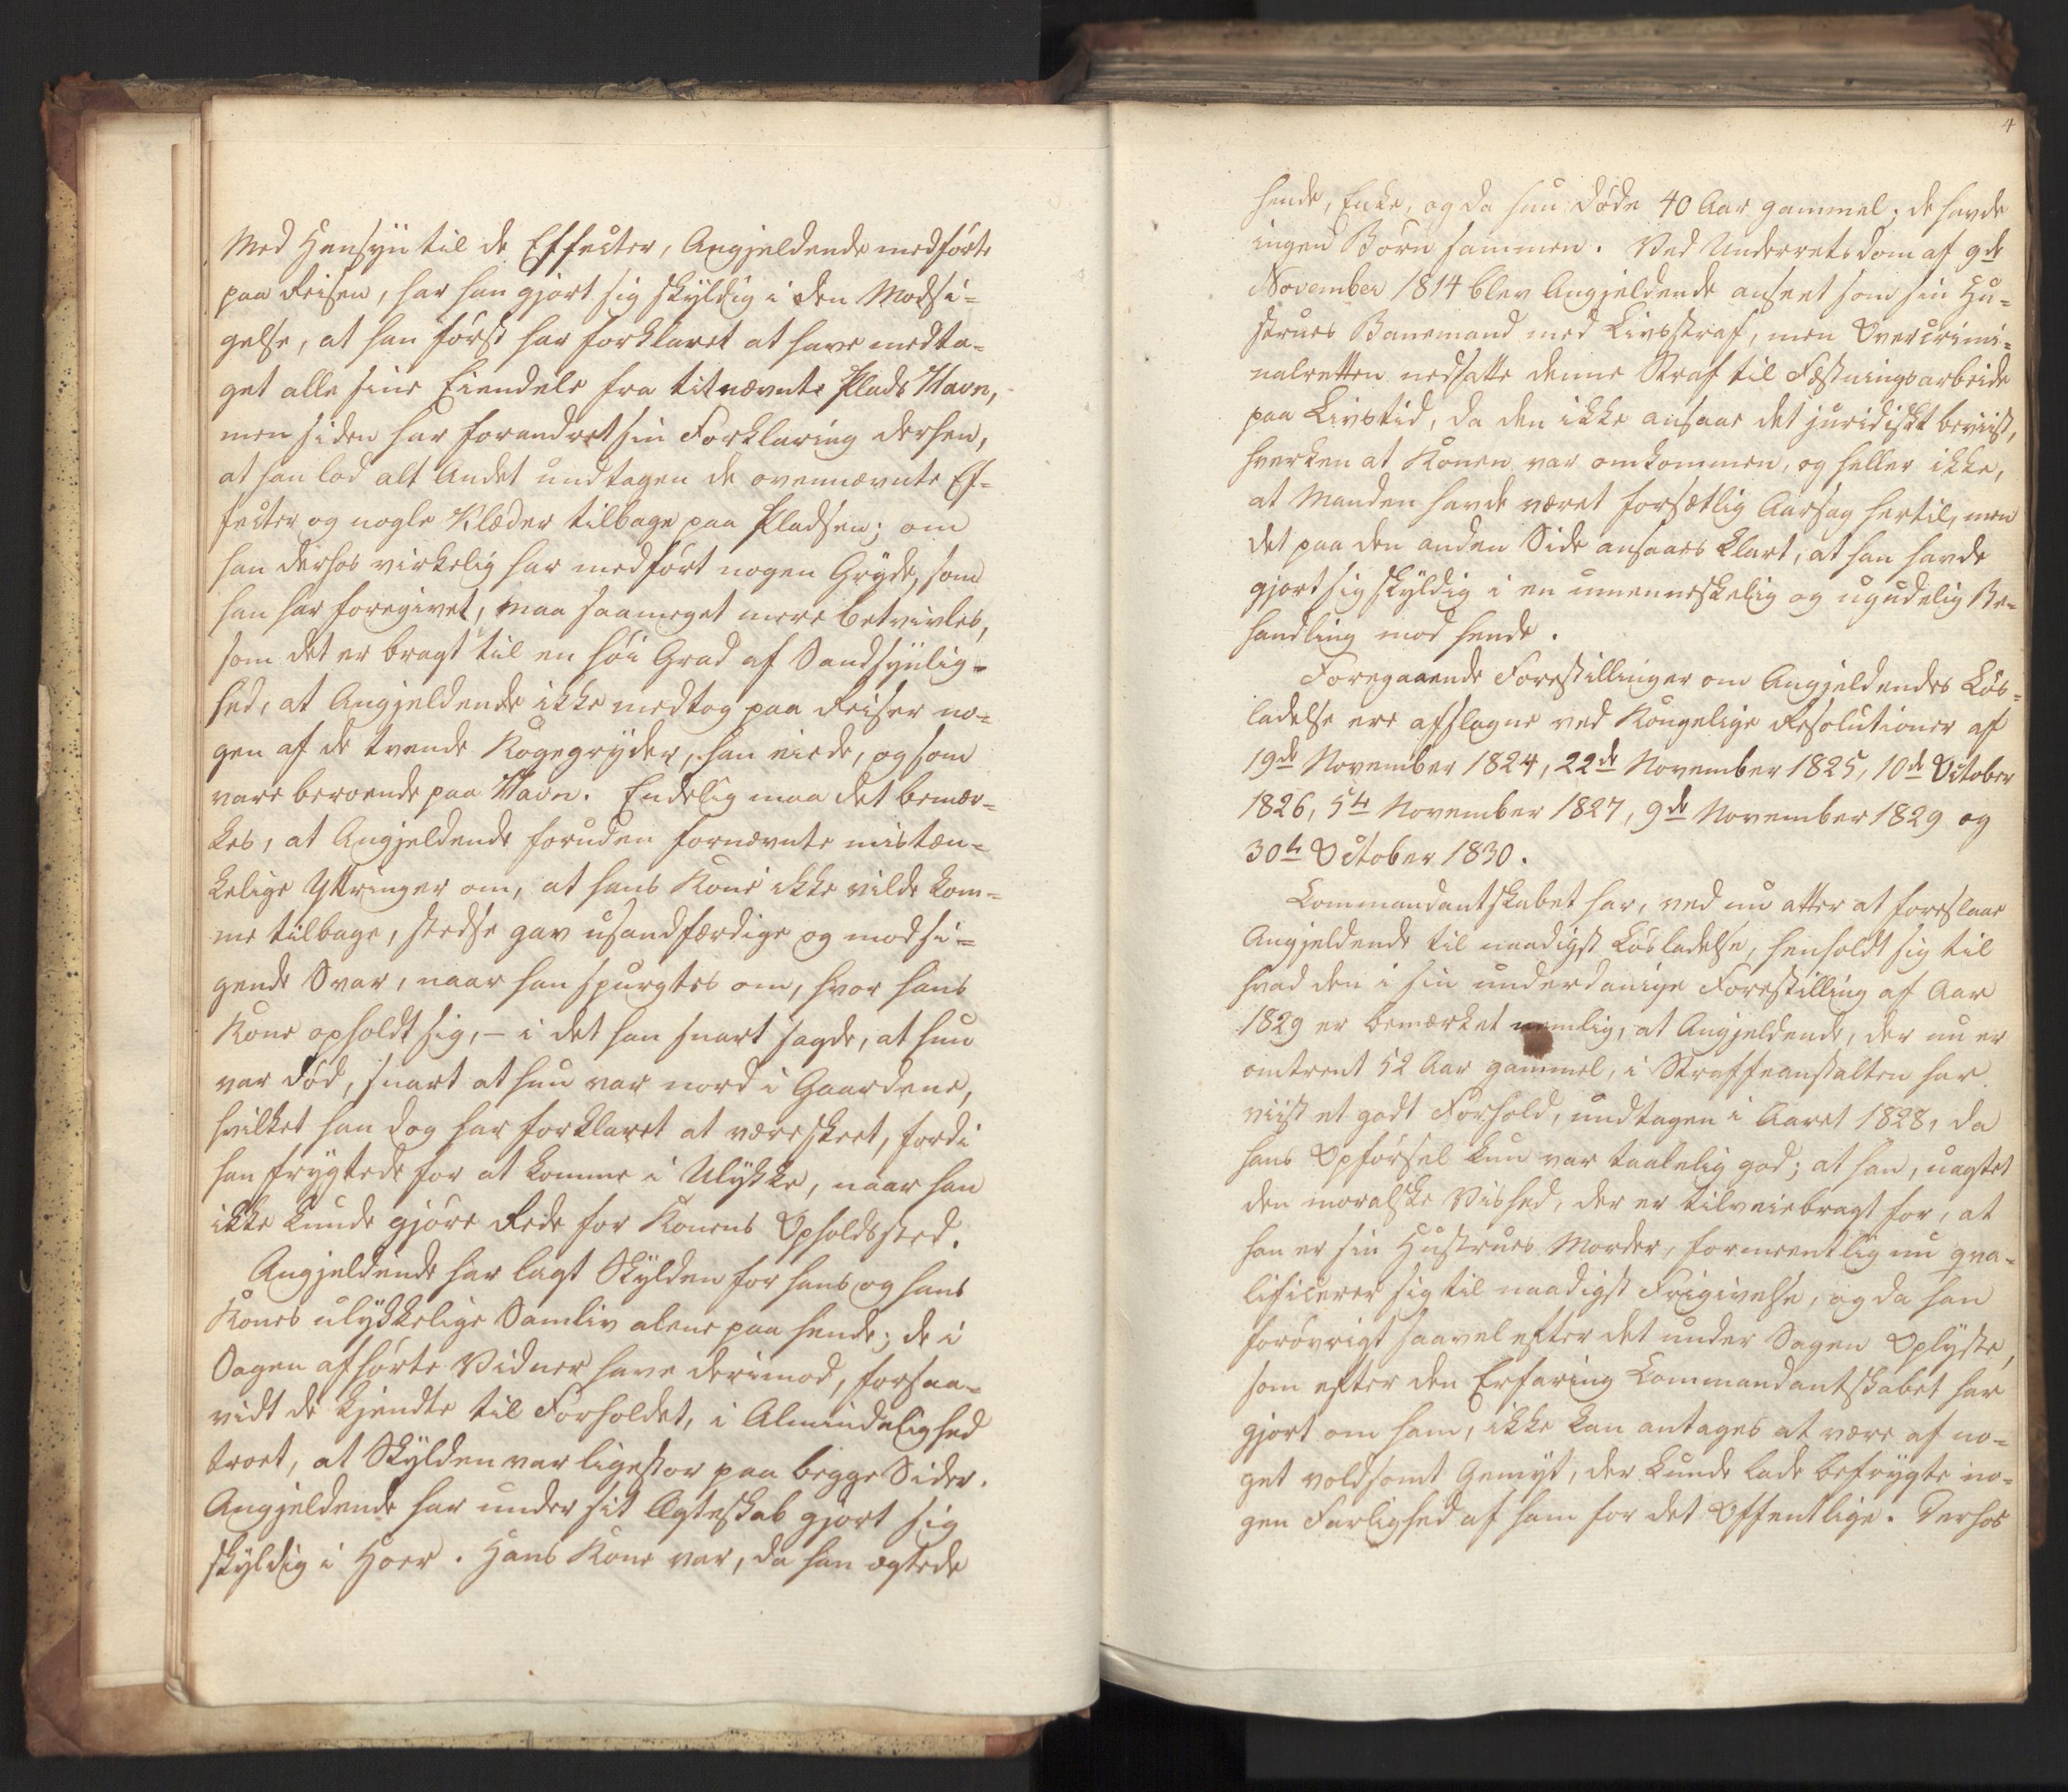 Med Hensyn til de Effecter, Angjeldende medførte
paa Reisen, har han gjort sig skyldig i den Modsi-
gelse, at han først har forklaret at have medta-
get alle sine Eiendele fra titnævnte Plads Havn,
men siden har forandret sin Forklaring derhen,
at han lod alt Andet undtagen de ovennævnte Ef-
fecter og nogle Klæder tilbage paa Pladsen; om
han derhos virkelig har medført nogen Gryde, som
han har foregivet, maa saameget mere betvivles,
som det er bragt til en høi Grad af Sandsynlig-
hed, at Angjeldende ikke medtog paa Reisen no-
gen af de tvende Kogegryder, han eiede, og som
vare beroende paa Havn. Endelig maa det bemær-
kes, at Angjeldende foruden fornævnte mistæn-
kelige Yttringer om, at hans Kone ikke vilde kom-
me tilbage, stedse gav usandfærdige og modsi-
gende Svar, naar han spurgtes om, hvor hans
Kone opholdt sig, – i det han snart sagde, at hun
var død, snart at hun var nord i Gaardene,
hvilket han dog har forklaret at være skeet, fordi
han frygtede for at komme i Ulykke, naar han
ikke kunde gjøre Rede for Konens Opholdssted.
Angjeldende har lagt Skylden for hans og hans
Kones ulykkelige Samliv alene paa hende; de i
Sagen afhørte Vidner have derimod, forsaa-
vidt de kjendte til Forholdet, i Almindelighed
troet, at Skylden var ligestor paa begge Sider.
Angjeldende har under sit Ægteskab gjort sig
skyldig i Hoer. Hans Kone var, da han ægtede
4
hende, Enke, og da hun døde 40 Aar gammel; de havde
ingen Børn sammen. Ved Underretsdom af 9de
November 1814 blev Angjeldende anseet som sin Hu-
strues Banemand med Livsstraf, men Overcrimi-
nalretten nedsatte denne Straf til Fæstningsarbeide
paa Livstid, da den ikke ansaae det juridiskt beviist,
hverken at Konen var omkommen, og heller ikke,
at Manden havde været forsætlig Aarsag hertil, men
det paa den anden Side ansaaes klart, at han havde
gjort sig skyldig i en umenneskelig og ugudelig Be-
handling mod hende.
Foregaaende Forestillinger om Angjeldendes Løs-
ladelse ere afslagne ved Kongelige Resolutioner af
19de November 1824, 22de November 1825, 10de October
1826, 5te November 1827, 9de November 1829 og
30te October 1830.
Commandantskabet har, ved nu atter at foreslaae
Angjeldende til naadigst Løsladelse, henholdt sig til
hvad den i sin underdanige Forestilling af Aar
1829 er bemærket nemlig, at Angjeldende, der nu er
omtrent 52 Aar gammel, i Straffeanstalten har
viist et godt Forhold, undtagen i Aaret 1828, da
hans Opførsel kun var taalelig god; at han, uagtet
den moralske Vished, der er tilveiebragt for, at
han er sin Hustrues Morder, formeentlig nu qva-
lificerer sig til naadigst Frigivelse, og da han
forøvrigt saavel efter det under Sagen Oplyste,
som efter den Erfaring Commandantskabet har
gjort om ham, ikke kan antages at være af no-
get voldsomt Gemyt, der kunde lade befrygte no-
gen Farlighed af ham for det Offentlige. Derhos